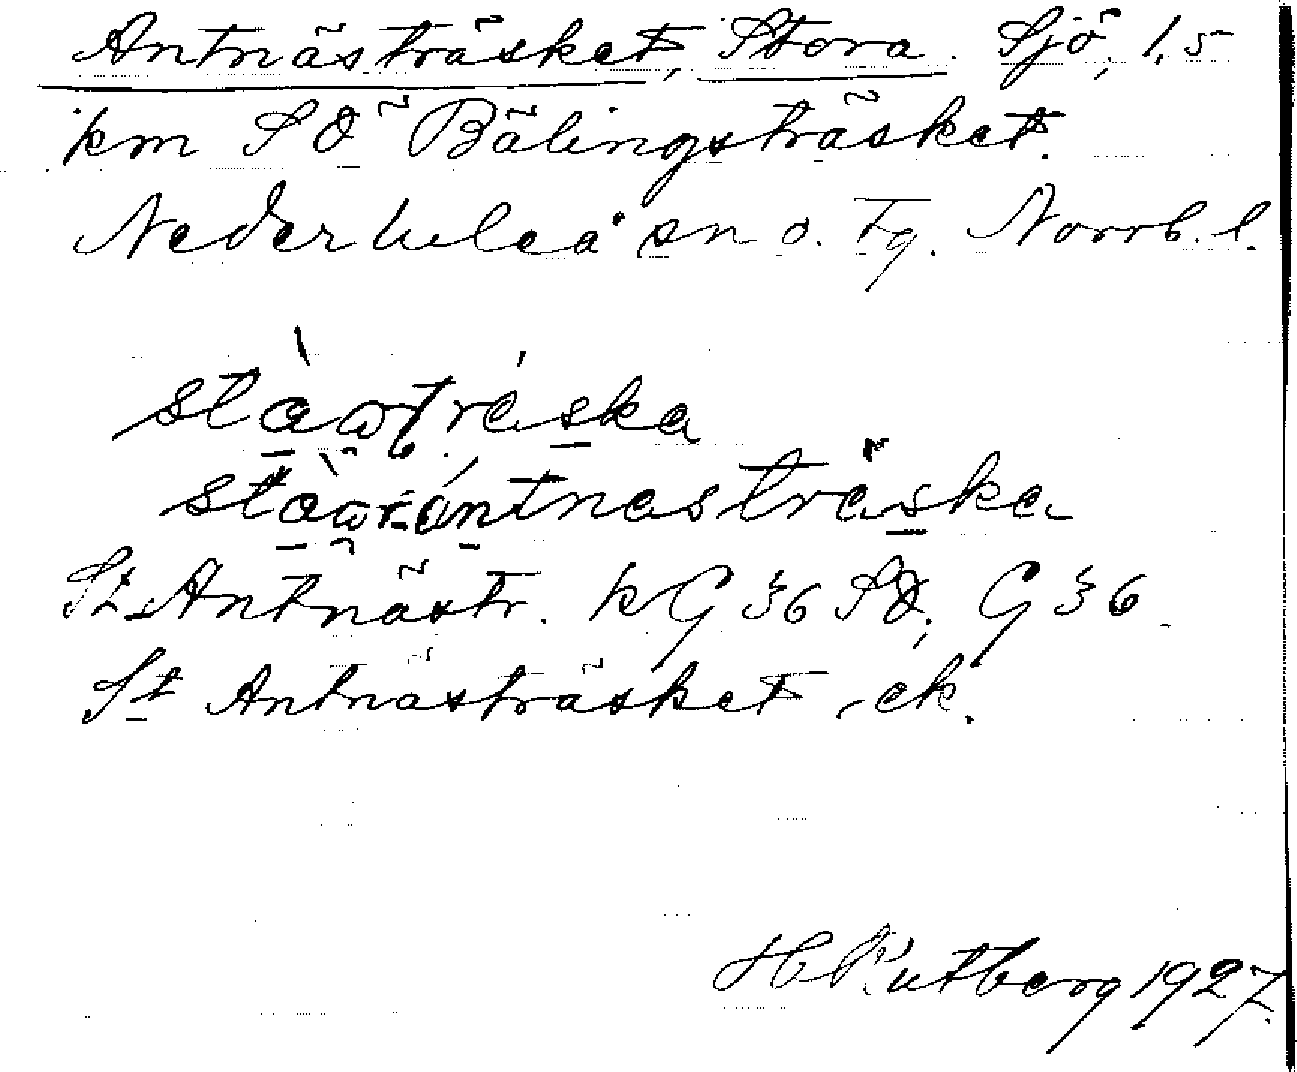 Antnästräsket, Stora. Sjö, 1,5
km SÖ Bälingsträsket.
Nederluleå sn o. tg. Norrb. l.
St. Antnästr. kG 36 SÖ, G 36
St Antnästräsket - ek.
H Rutberg 1927.